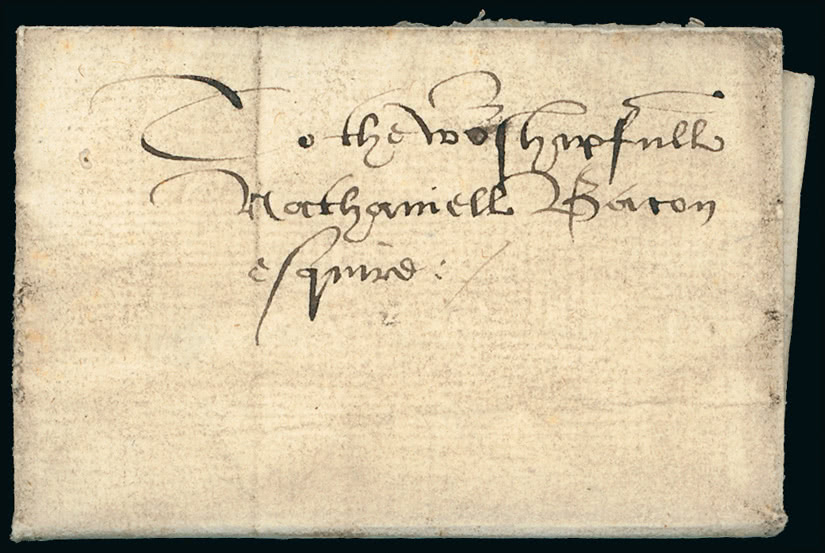 To the woshipfull
Nathaniell Bacon
esquire :